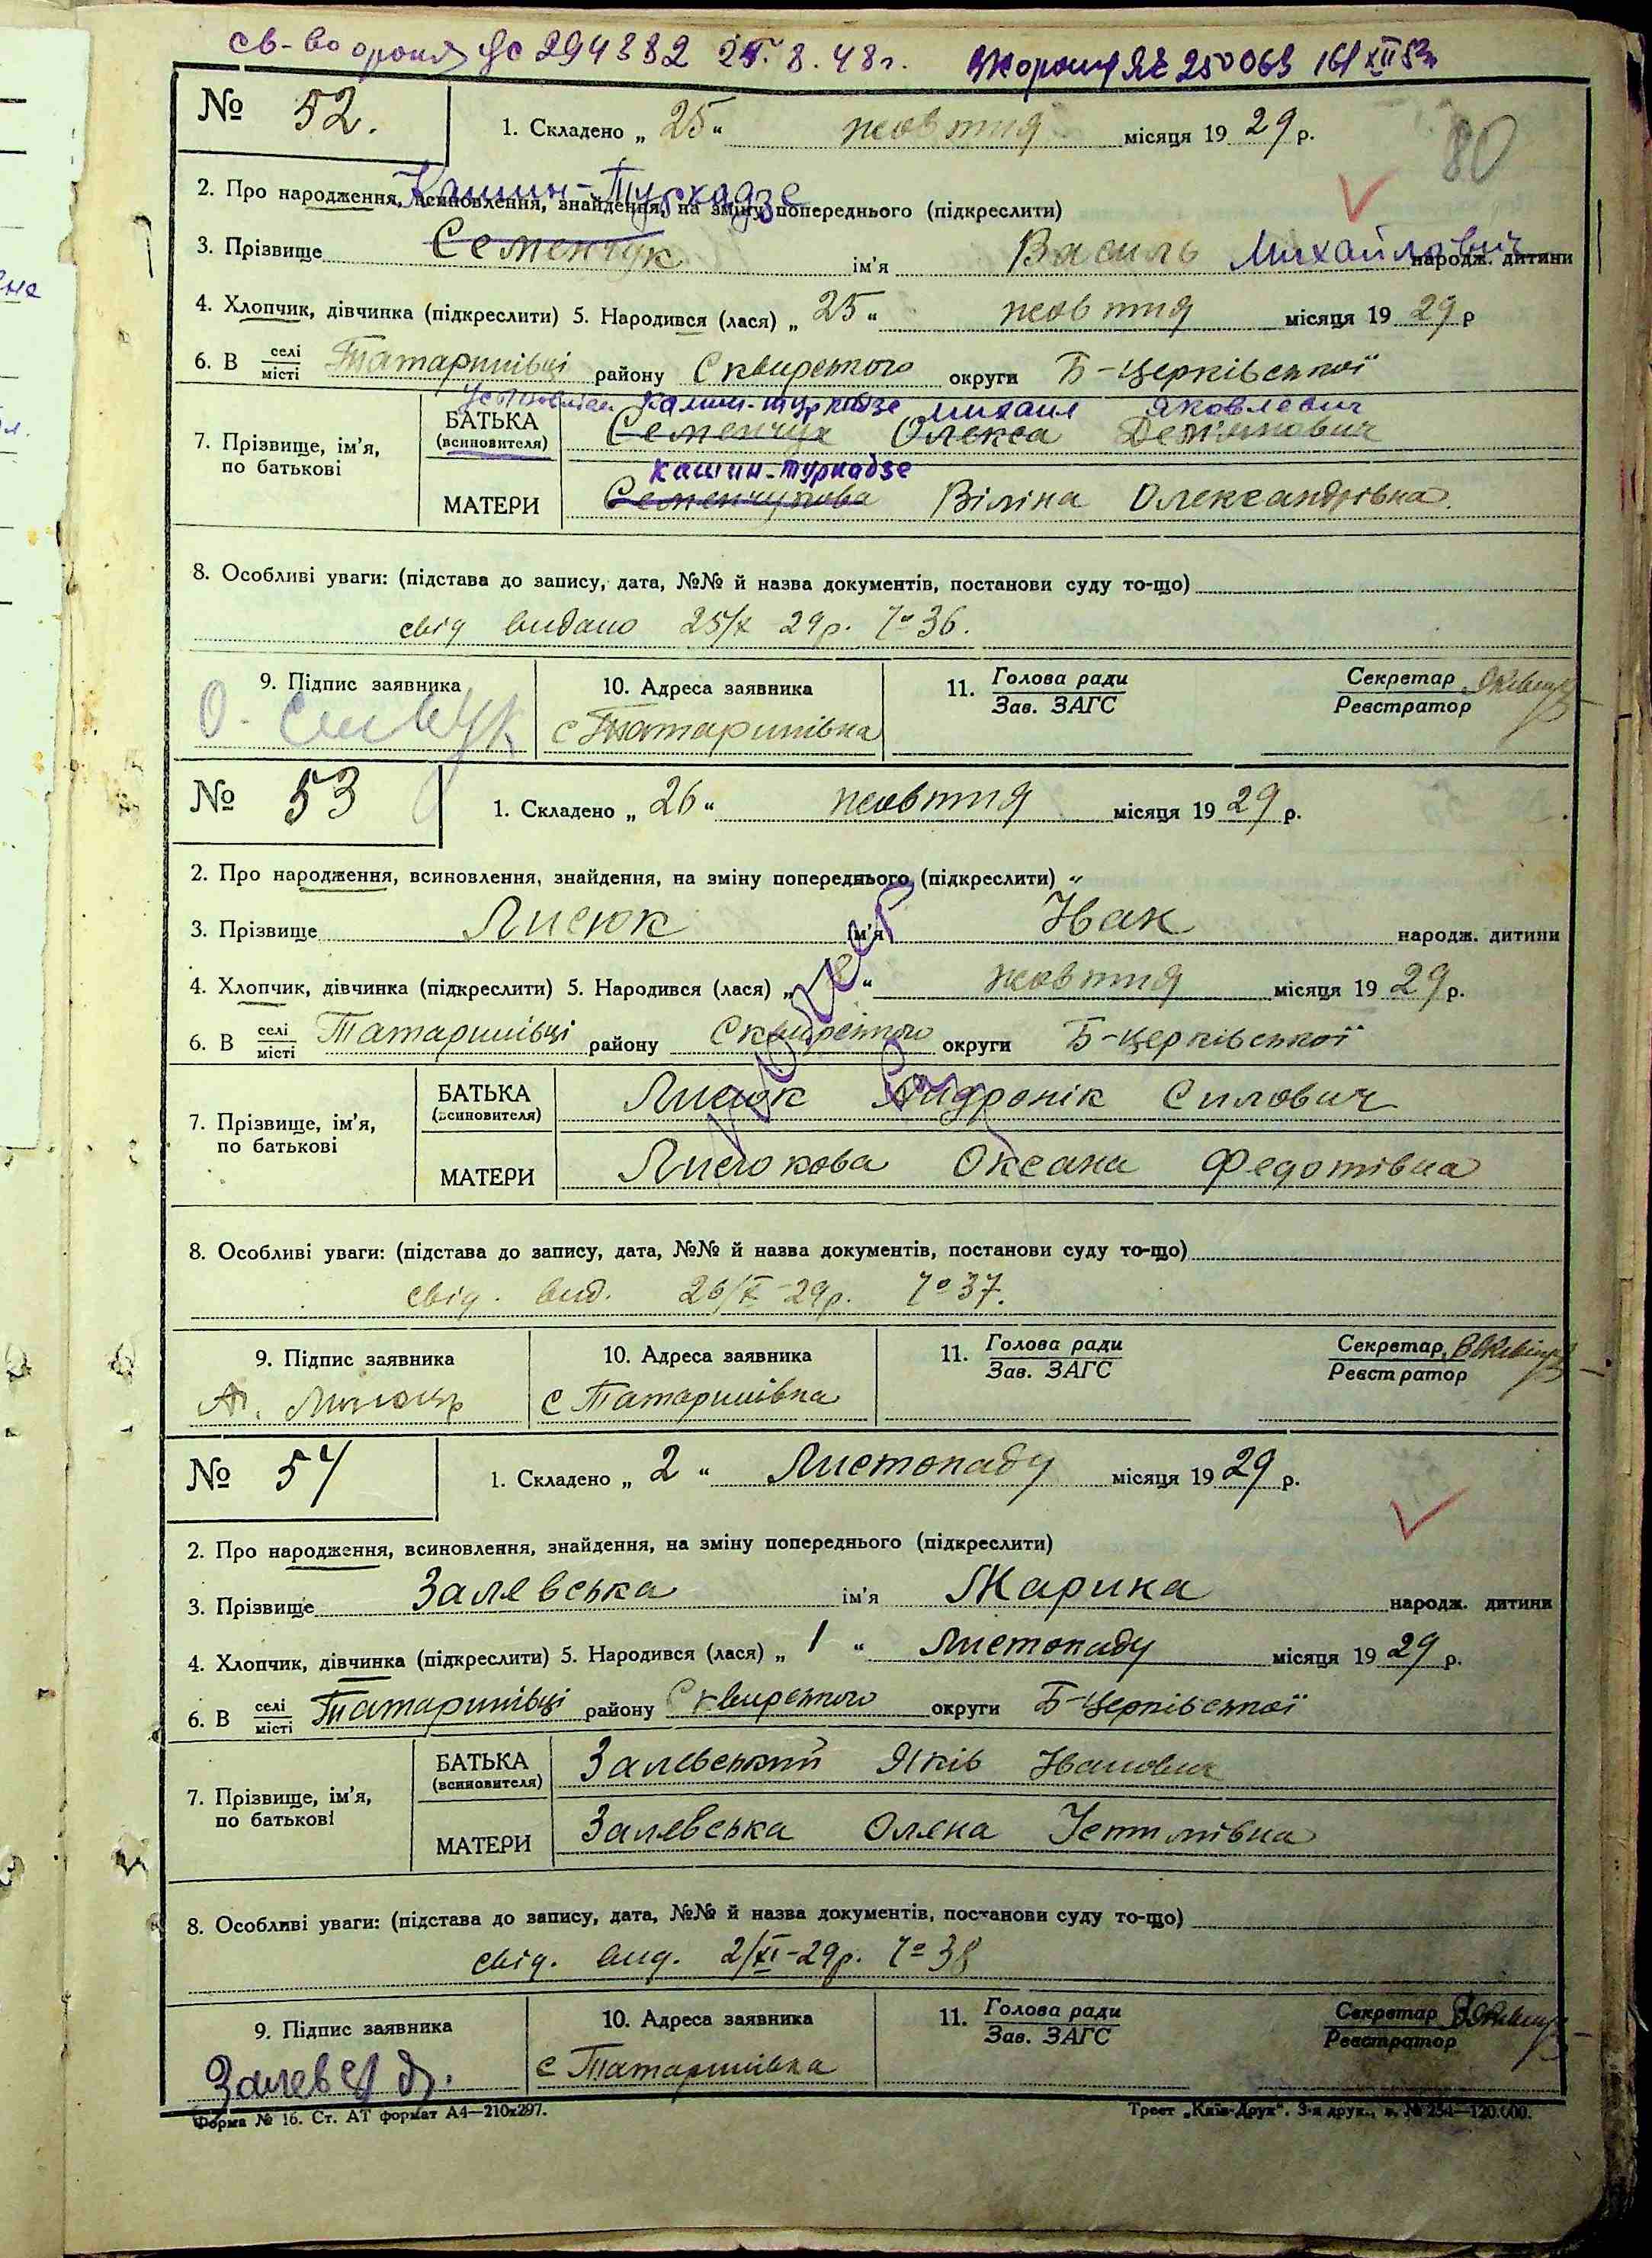 св-во 294382 25. 8. 48 г. 250069 16/XII 53
№ 52. 1. Складено „ 25 “ жовтня місяця 19 29 р.
80
Кашин-Туркадзе
2. Про народження, всиновлення, знайдення, на зміну попереднього (підкреслити)
3. Прізвище Семенчук ім'я Василь Михайлович народж. дитини
4. Хлопчик, дівчинка (підкреслити) 5. Народився (лася) „ 25 “ жовтня місяця 19 29 р
6. В селі/місті Татаринівці району Сквирського округи Б-Церківської
Кашин-Туркадзе Михаил Яковлевич
7. Прізвище, ім'я, по батькові БАТЬКА (всиновителя) Семенчук Олекса Дем'янович
Кашин-Туркадзе
МАТЕРИ Семенчукова Віліна Олександрівна
8. Особливі уваги: (підстава до запису, дата, №№ й назва документів, постанови суду то-що)
свід видано 25/X 29 р. № 36.
9. Підпис заявника 10. Адреса заявника 11. Голова ради Секретар
Зав. ЗАГС Реєстратор
с Татаринівка
№ 53 1. Складено „ 26 “ жовтня місяця 19 29 р.
2. Про народження, всиновлення, знайдення, на зміну попереднього (підкреслити)
3. Прізвище Лисюк ім'я Івак народж. дитини
4. Хлопчик, дівчинка (підкреслити) 5. Народився (лася) „ “ жовтня місяця 19 29 р.
6. В селі/місті Татаринівці району Сквирського округи Б-Церківської
7. Прізвище, ім'я, по батькові БАТЬКА (всиновителя) Лисюк Андронік Силович
МАТЕРИ Лисюкова Оксана Федотівна
8. Особливі уваги: (підстава до запису, дата, №№ й назва документів, постанови суду то-що)
свід. вид. 26/X-29 р. № 37.
9. Підпис заявника 10. Адреса заявника 11. Голова ради Секретар
Зав. ЗАГС Реєстратор
с Татаринівка
№ 54 1. Складено „ 2 “ Листопаду місяця 19 29 р.
2. Про народження, всиновлення, знайдення, на зміну попереднього (підкреслити)
3. Прізвище Залевська ім'я Марика народж. дитини
4. Хлопчик, дівчинка (підкреслити) 5. Народився (лася) „ 1 “ Листопаду місяця 19 29 р.
6. В селі/місті Татаринівці району Сквирського округи Б-Церківської
7. Прізвище, ім'я, по батькові БАТЬКА (всиновителя) Залевський Яків Іванович
МАТЕРИ Залевська Оляна Устимівна
8. Особливі уваги: (підстава до запису, дата, №№ й назва документів, постанови суду то-що)
свід. вид. 2/XI-29 р. № 38
9. Підпис заявника 10. Адреса заявника 11. Голова ради Секретар
Зав. ЗАГС Реєстратор
с Татаринівка
Форма № 16. Ст. АТ формат А4—210x297. Трест „Київ-Друк“. 3-я друк., з. № 254—120.000.